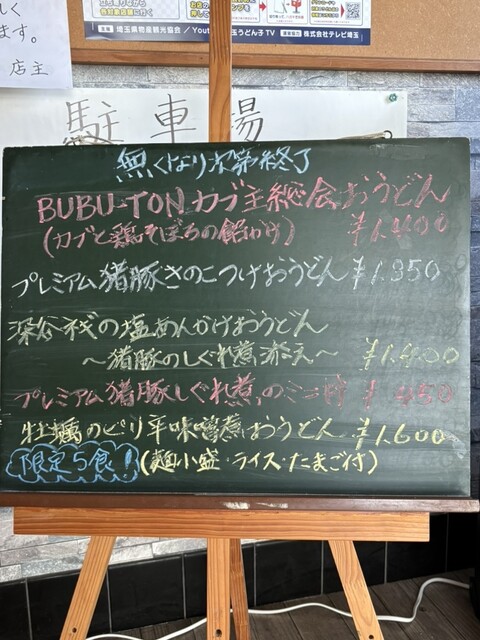 しく
ます。
店主
主催 埼玉県物産観光協会 / Youtu 玉うどん子TV 運営協力 株式会社テレビ埼玉
駐車場
無くなり次第終了
BUBU-TONカブ主総会おうどん
(カブと鶏そぼろの餡かけ) ¥1,400
プレミアム猪豚きのこつけおうどん ¥1,350
深谷ネギの塩あんかけおうどん
～猪豚のしぐれ煮添え～ ¥1,400
プレミアム猪豚しぐれ煮のミニ丼 ¥450
牡蠣のピリ辛味噌煮おうどん ¥1,600
限定5食! (麺小盛・ライス・たまご付)